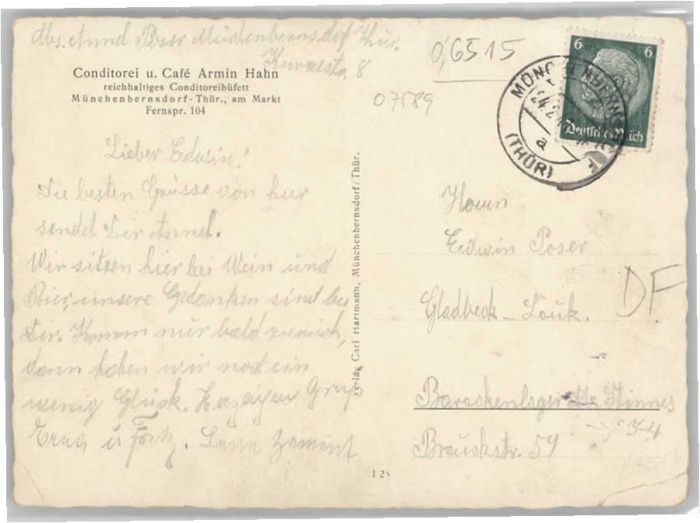 Abs. Arnd Poser Münchenbernsdorf Thür.
8
Conditorei u. Café Armin Hahn
reichhaltiges Conditoreibüfett
Münchenbernsdorf-Thür., am Markt
Fernspr. 104
0,65 15
07589
6 6
Deutsches Reich
(THÜR)
a
Lieber Edwin!
Die besten Grüsse von hier
sendet Dir
Wir sitzen hier bei Wein und
Bier, unsere Gedanken sind bei
Dir. Komm nur bald zurück,
dann haben wir noch ein
wenig Glück. Gruß
Erna u.
Verlag Carl Hartmann, Münchenbernsdorf/Thür.
Herrn
Edwin Poser
Gladbeck-
DF.
Barackenlager Stinnes
Brauckstr. 59
34